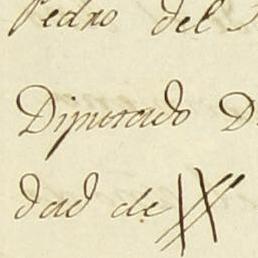 Pedro del
Diputado D
dad de